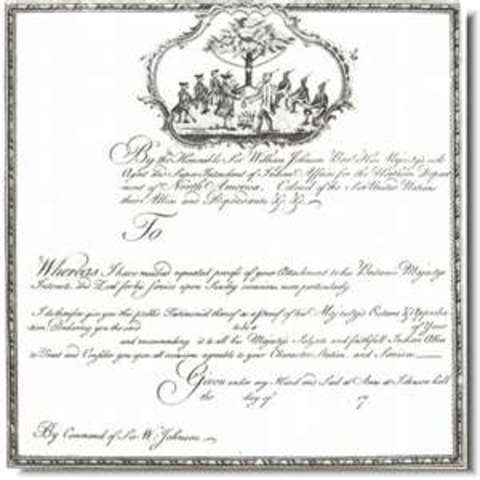 By the Honorable Sir William Johnson Bart. His Majesty's sole
Agent and Super Intendant of Indian Affairs for the Northern Depart
ment of North America, Colonel of the Six United Nations
their Allies and Dependants &c. &c.
To
Whereas I have received repeated proofs of your Attachment to his Britannic Majesty's
Interests and Zeal for his Service upon Sundry occasions more particularly
I do therefore give you this public Testimonial thereof as a proof of his Majesty's Esteem & Approba
tion Declaring you the said to be a of Your
and recommending it to all his Majesty's Subjects and faithfull Indian Allies
to Treat and Consider you upon all occasions agreable to your Character, Station, and Services
Given under my Hand and Seal at Arms at Johnson hall
the day of 17
By Command of Sir W: Johnson